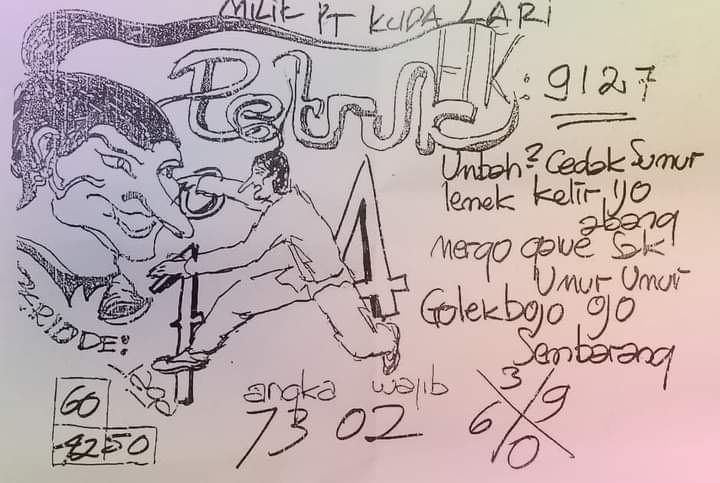 MILIK PT KUDA LARI
Petruk
HK: 9127
Umbah² Cedak Sumur
lemek kelir ijo
abang
mergo gawe Sak
Umur Umur
Golek bojo ojo
Sembarang
4
PERIODE:
60
42 50
angka wajib
73 02
3
6 9
0